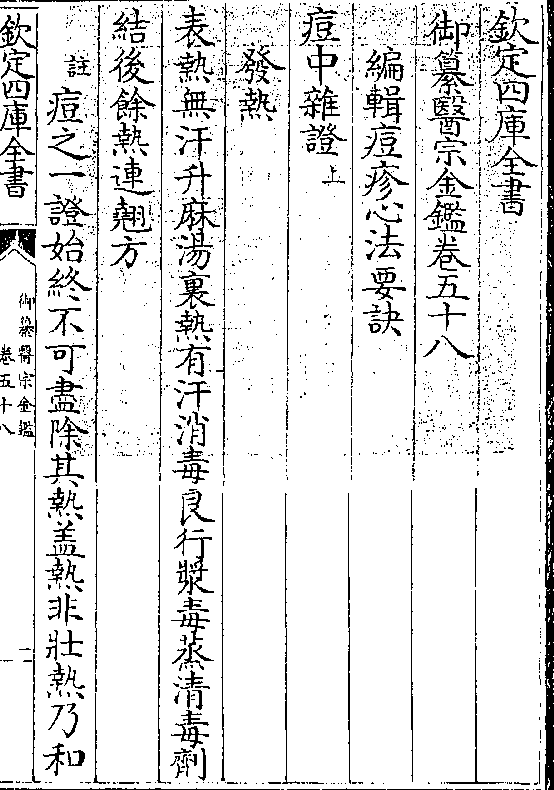 欽定四庫全書
御纂醫宗金鑑卷五十八
編輯痘疹心法要訣
痘中雜證上
發熱
表熱無汗升麻湯裏熱有汗消毒良行漿毒蒸清毒劑
結後餘熱連翹方
註痘之一證始終不可盡除其熱盖熱非壯熱乃和
欽定四庫全書
御纂醫宗金鑑
卷五十八